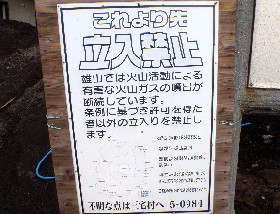 これより先
立入禁止
雄山では火山活動による
有毒な火山ガスの噴出が
断続しています。
条例に基づき許可を得た
者以外の立入りを禁止し
ます。
不明な点は三宅村へ 5-0984